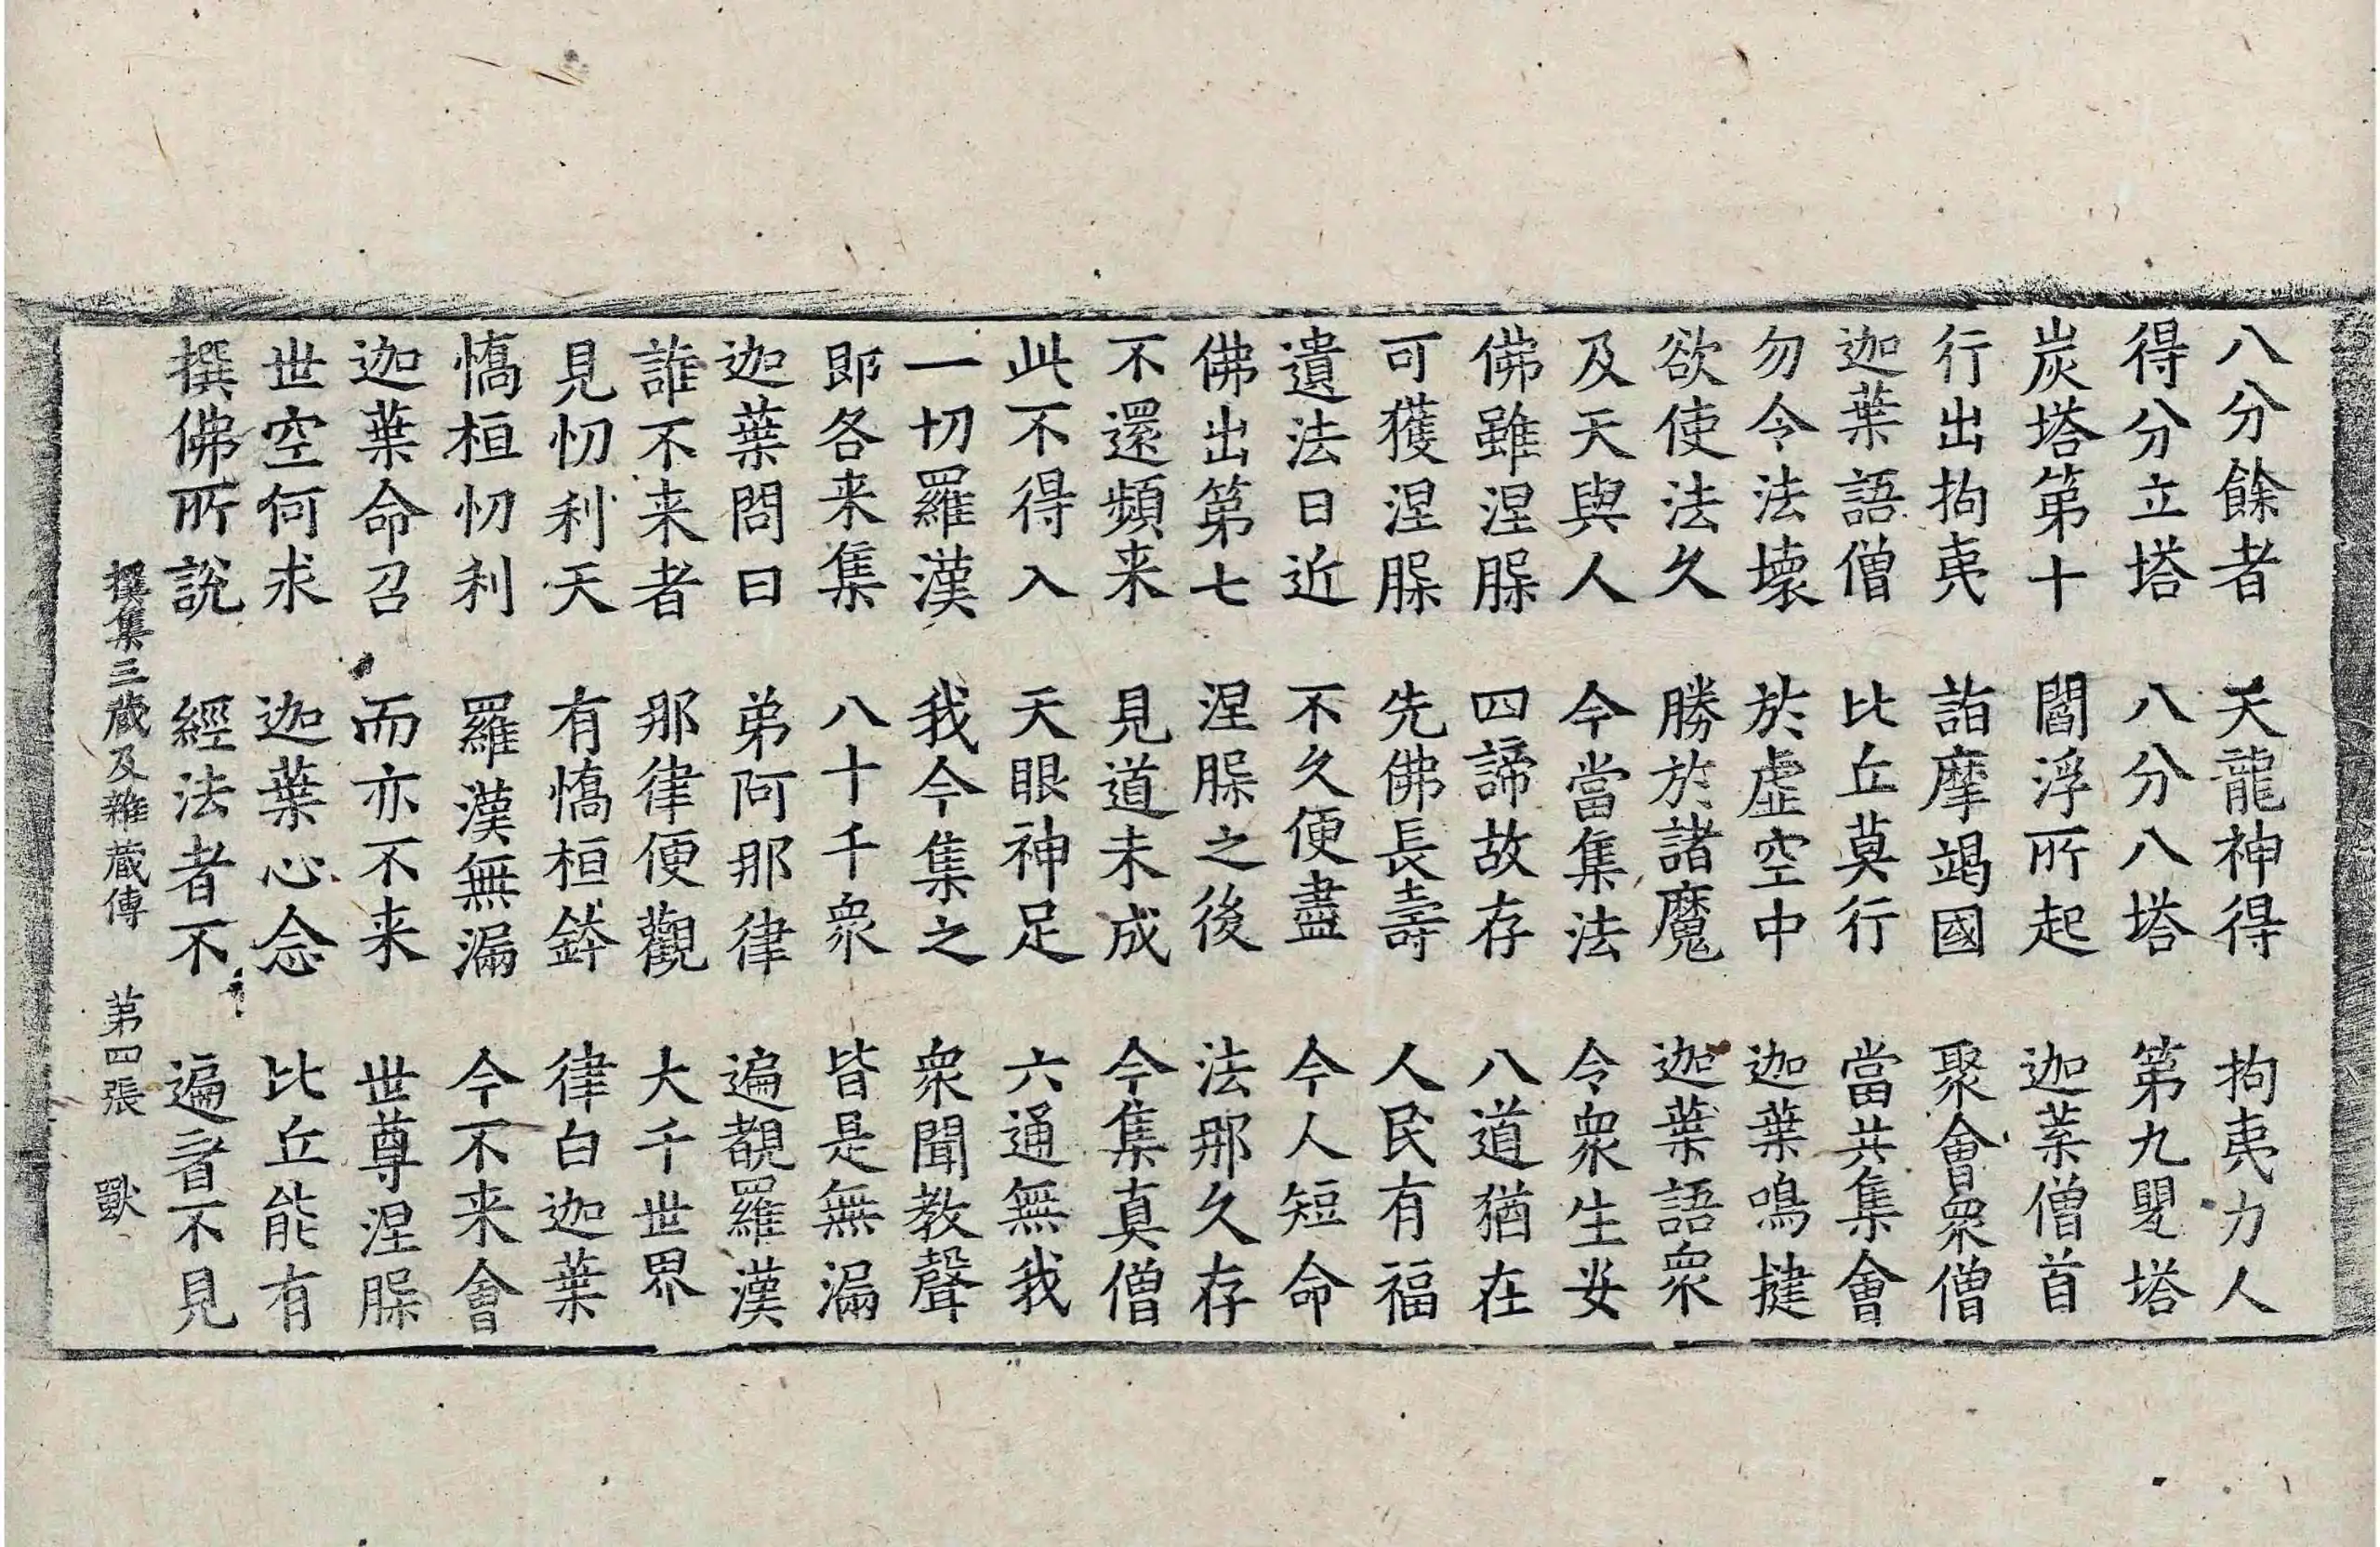 八分餘者　天龍神得　拘夷力人
得分立塔　八分八塔　第九甖塔
炭塔第十　閻浮所起　迦葉僧首
行出拘夷　詣摩竭國　聚會衆僧
迦葉語僧　比丘莫行　當共集會
勿令法壞　於虛空中　迦葉鳴揵
欲使法久　勝於諸魔　迦葉語衆
及天與人　今當集法　令衆生安
佛雖涅槃　四諦故存　八道猶在
可獲涅槃　先佛長壽　人民有福
遺法日近　不久便盡　今人短命
佛出第七　涅槃之後　法那久存
不還頻来　見道未成　今集真僧
此不得入　天眼神足　六通無我
一切羅漢　我今集之　衆聞教聲
即各来集　八十千衆　皆是無漏
迦葉問曰　弟阿那律　遍覩羅漢
誰不来者　那律便觀　大千世界
見忉利天　有憍桓鉢　律白迦葉
憍桓忉利　羅漢無漏　今不来會
迦葉命召　而亦不来　世尊涅槃
世空何求　迦葉心念　比丘能有
撰佛所說　經法者不　遍者不見
撰集三藏及雜藏傳　第四張　獸